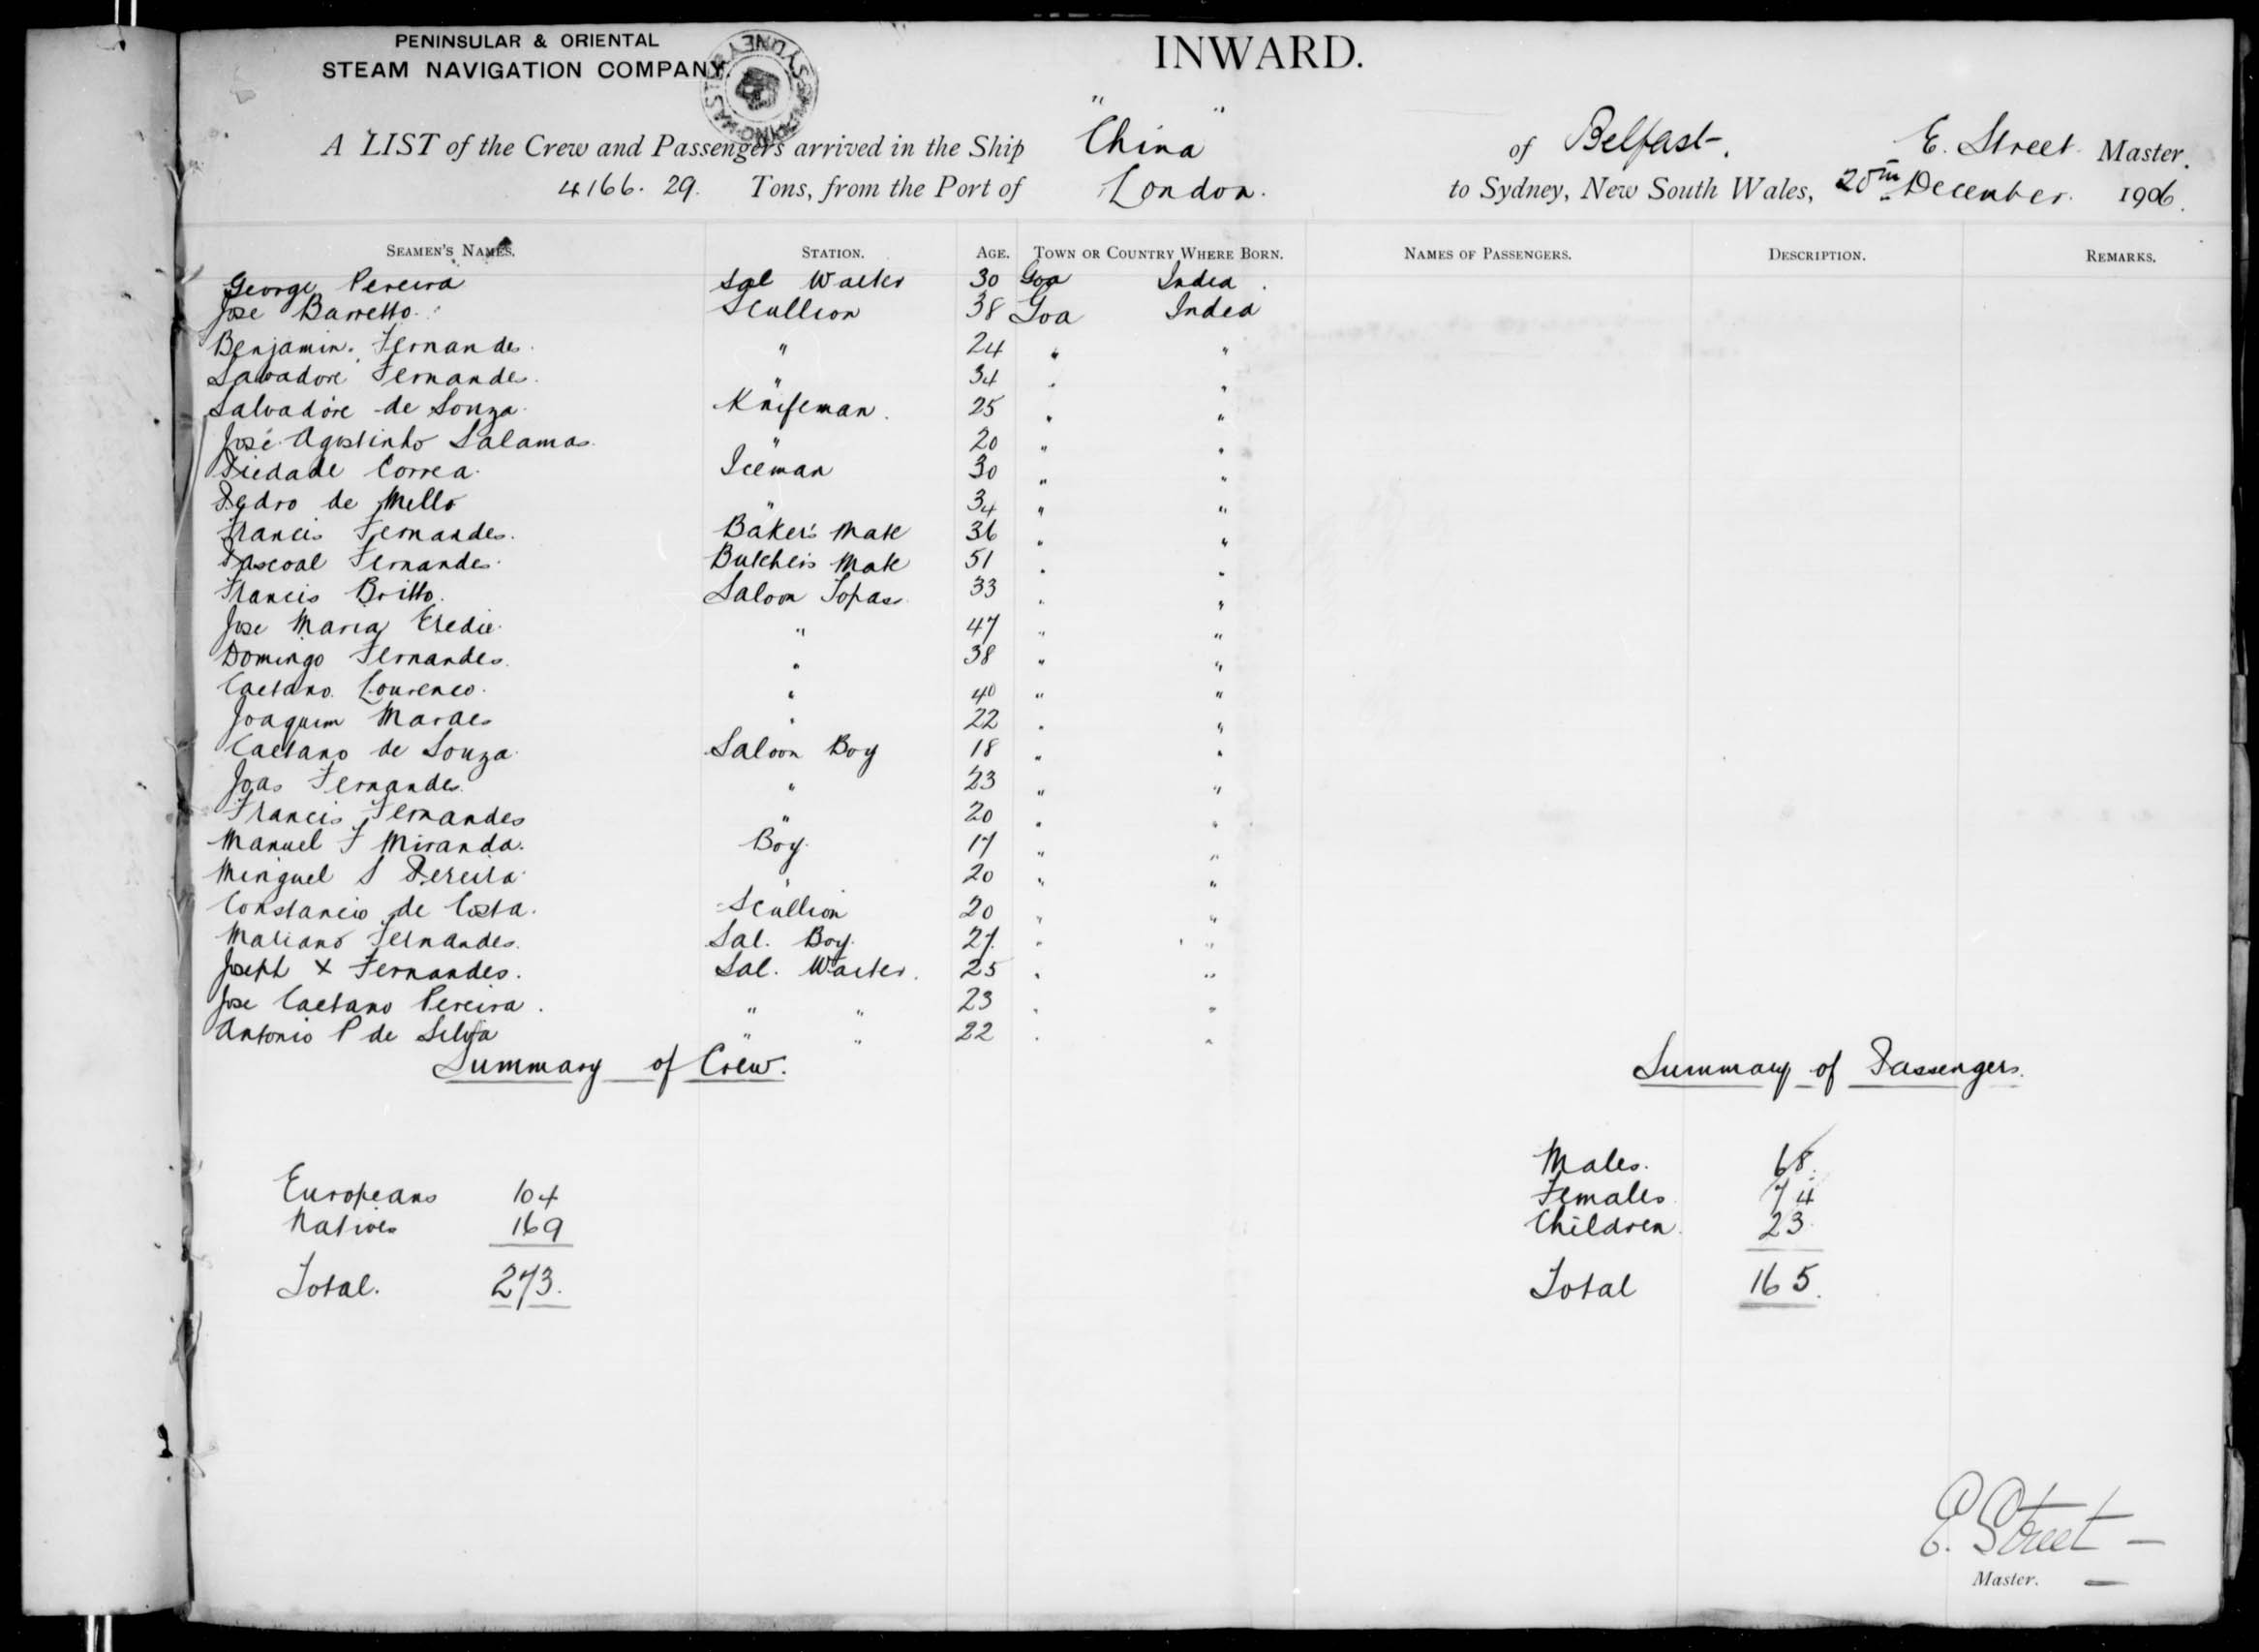 PENINSULAR & ORIENTAL
STEAM NAVIGATION COMPANY.
INWARD.
A LIST of the Crew and Passengers arrived in the Ship "China" of Belfast. E. Street Master.
4166.29. Tons, from the Port of London. to Sydney, New South Wales, 20th December 1906.
SEAMEN'S NAMES. STATION. AGE. TOWN OR COUNTRY WHERE BORN. NAMES OF PASSENGERS. DESCRIPTION. REMARKS.
George Pereira Sal Waiter 30 Goa India.
Jose Barretto. Scullion 38 Goa India
Benjamin Fernandes. " 24 " "
Salvadore Fernandes. " 34 " "
Salvadore de Souza. Knifeman. 25 " "
José Agostinho Salamas. " 20 " "
Piedade Correa. Iceman 30 " "
Pedro de Mello " 34 " "
Francis Fernandes. Baker's Mate 36 " "
Pascoal Fernandes. Butcher's Mate 51 " "
Francis Britto. Saloon Topas 33 " "
Jose Maria Eredie. " 47 " "
Domingo Fernandes. " 38 " "
Caetano Lourenco. " 40 " "
Joaquim Moraes " 22 " "
Caetano de Souza. Saloon Boy 18 " "
Joas Fernandes. " 23 " "
Francis Fernandes " 20 " "
Manuel F Miranda. Boy. 17 " "
Minguel S Pereira " 20 " "
Constancio de Costa. Scullion 20 " "
Mariano Fernandes. Sal. Boy. 27. " "
Joseph X Fernandes. Sal. Waiter. 25 " "
Jose Caetano Pereira. " " 23 " "
Antonio P de Silva " " 22 " "
Summary of Crew. Summary of Passengers.
Europeans 104
Natives 169
Total. 273.
Males. 68.
Females 74
Children. 23.
Total 165.
E. Street
Master.